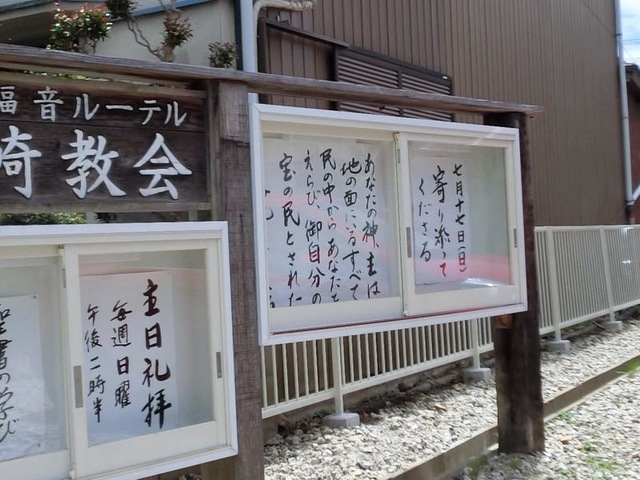 福音ルーテル
崎教会
七月十七日(日)
寄り添って
くださる
あなたの神、主は
地の面にいるすべて
民の中からあなたを
えらび、御自分の
宝の民とされた
主日礼拝
毎週日曜
午後一時半
聖書の学び